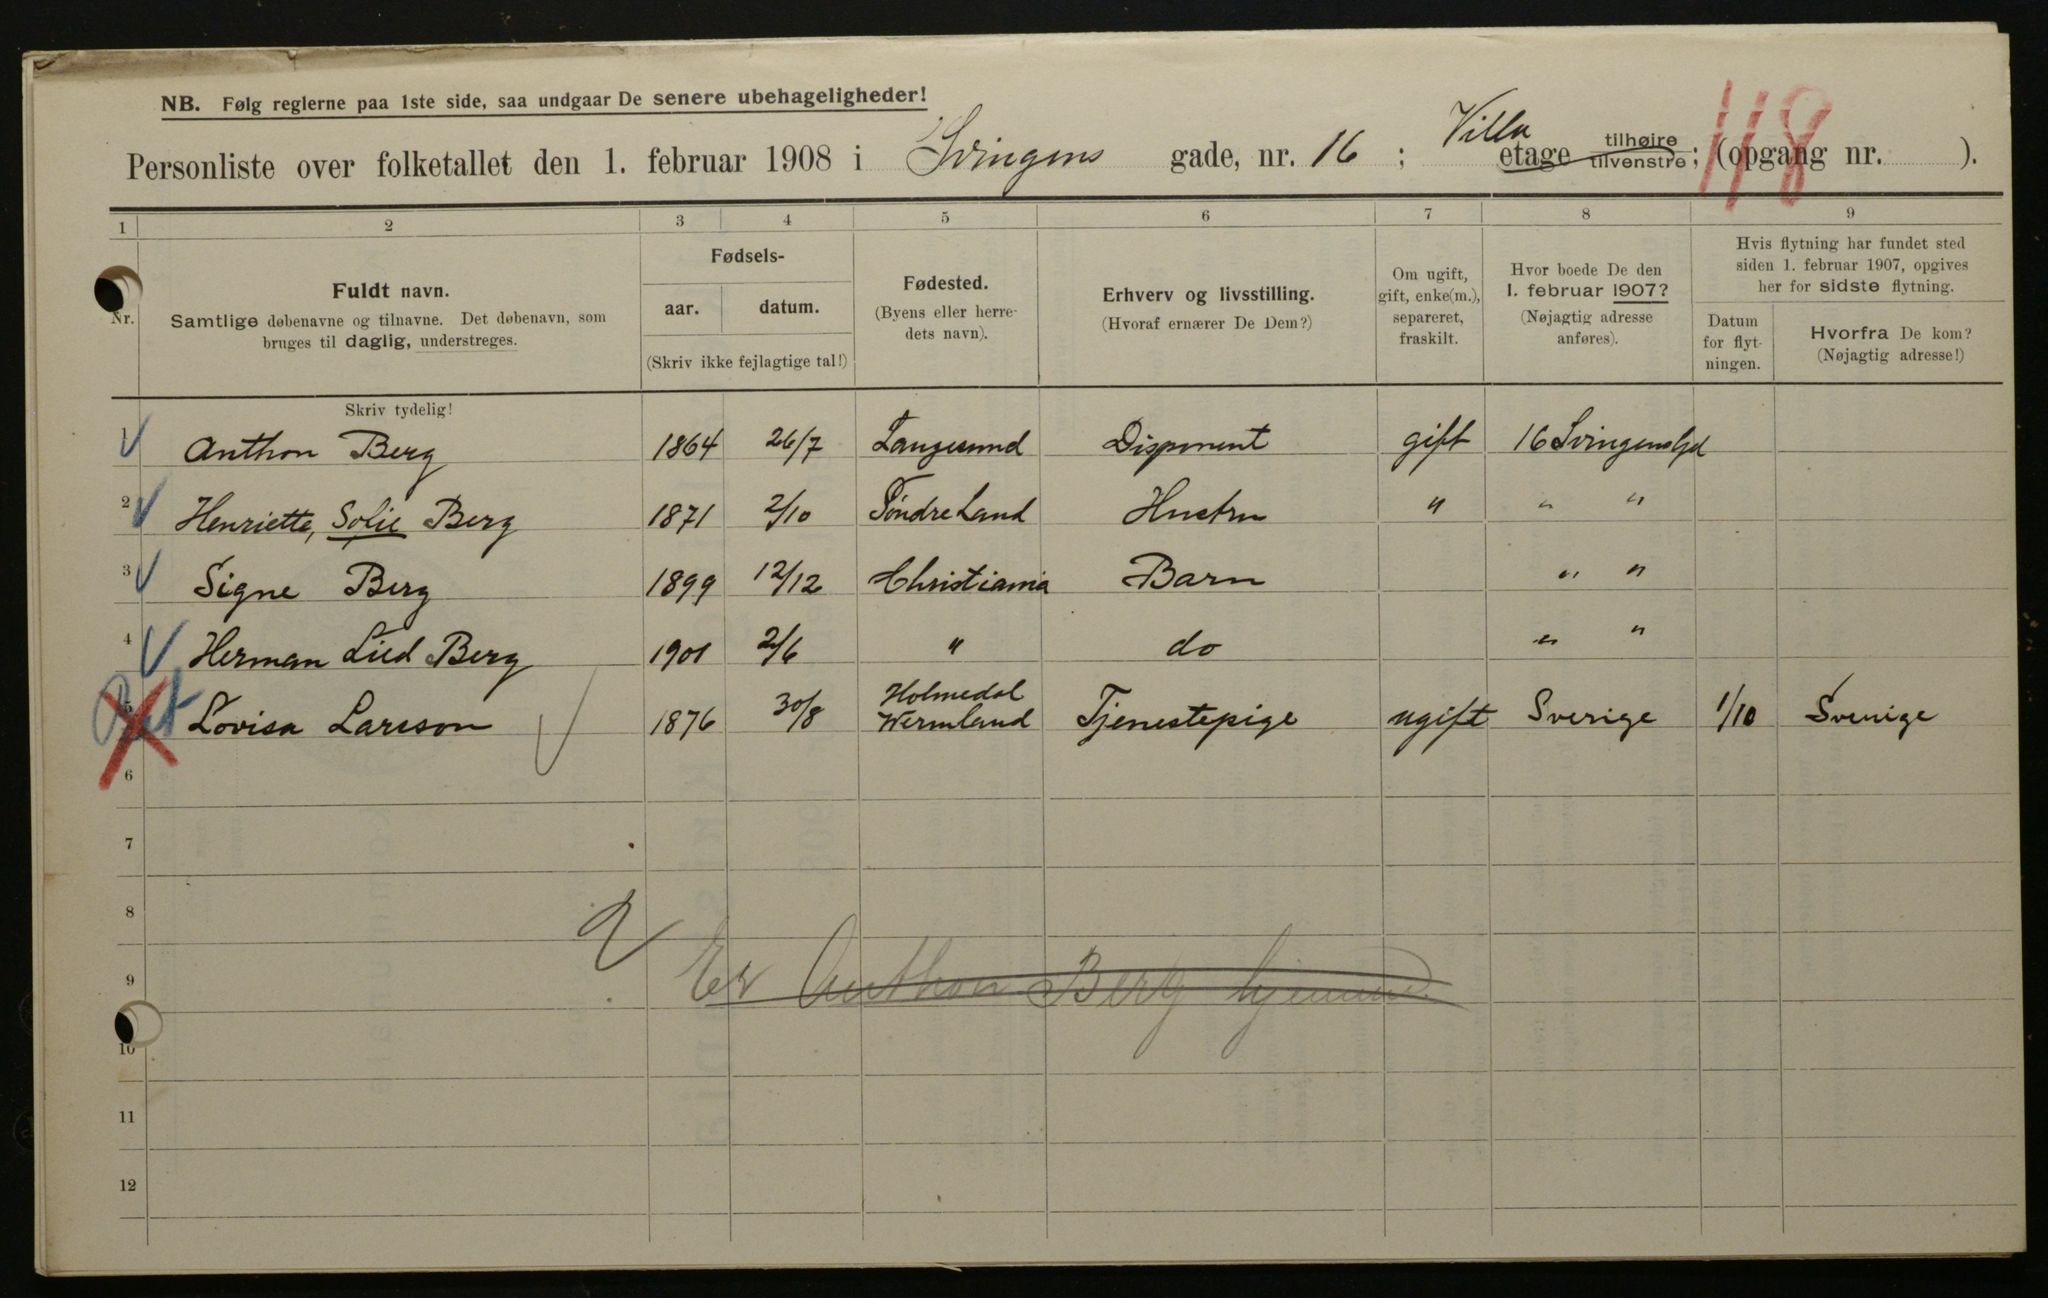 NB. Følg reglerne paa 1ste side, saa undgaar De senere ubehageligheder!
Personliste over folketallet den 1. februar 1908 i Svingens gade, nr. 16; Villa etage tilhøire tilvenstre; (opgang nr. ).
118
1 2 3 4 5 6 7 8 9
Nr.
Fuldt navn.
Samtlige døbenavne og tilnavne. Det døbenavn, som
bruges til daglig, understreges.
Fødsels-
aar. datum.
(Skriv ikke fejlagtige tal!)
Fødested.
(Byens eller herre-
dets navn).
Erhverv og livsstilling.
(Hvoraf ernærer De Dem?)
Om ugift,
gift, enke(m.),
separeret,
fraskilt.
Hvor boede De den
1. februar 1907?
(Nøjagtig adresse
anføres).
Hvis flytning har fundet sted
siden 1. februar 1907, opgives
her for sidste flytning.
Datum
for flyt-
ningen.
Hvorfra De kom?
(Nøjagtig adresse!)
Skriv tydelig!
1 Anthon Berg 1864 26/7 Langesund Disponent gift 16 Svingensgd
2 Henriette, Sofie Berg 1871 2/10 Søndre Land Hustru " " "
3 Signe Berg 1899 12/12 Christiania Barn " "
4 Herman Lied Berg 1901 2/6 " do " "
5 Lovisa Larsson 1876 30/8 Holmedal Wermland Tjenestepige ugift Sverige 1/10 Sverige
6
7
8
9 Er Anthon Berg hjemme.
10
11
12